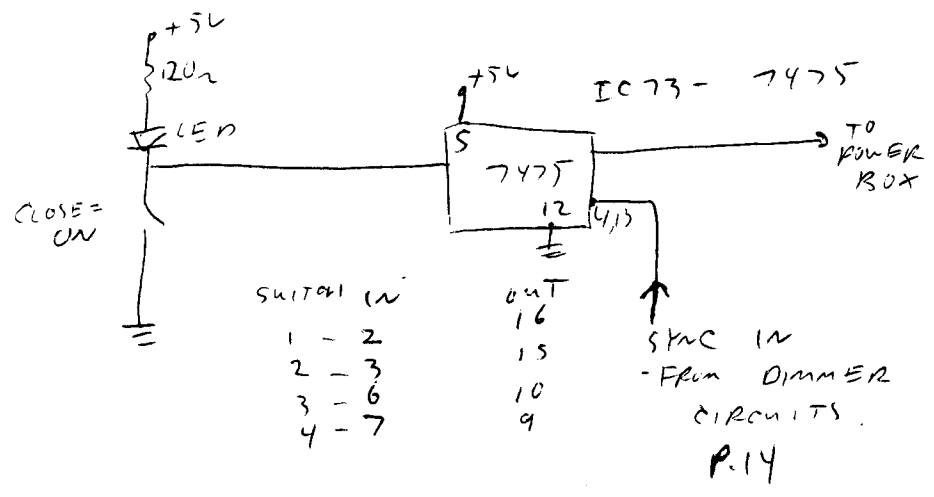 +5V
120Ω
LED
CLOSE =
ON
+5V
IC73 - 7475
5
7475
12
4,13
TO
POWER
BOX
SWITCH IN OUT
1 - 2 16
2 - 3 15
3 - 6 10
4 - 7 9
SYNC IN
- FROM DIMMER
CIRCUITS.
P.14